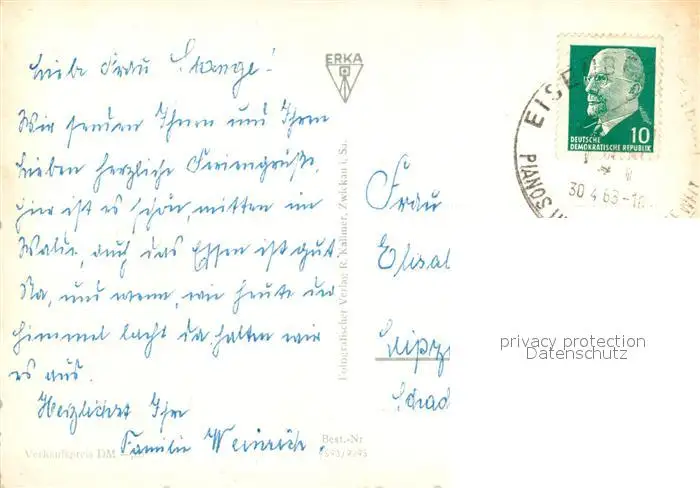 Liebe Frau Stange!
Wir senden Ihnen und Ihren
Lieben herzliche Feriengrüße.
Hier ist es schön, mitten im
Walde, auch das Essen ist gut.
Na, und wenn, wie heute der
Himmel lacht da halten wir
es aus.
Herzlichst Ihre
Familie Weinrich.
Verkaufspreis DM
Best.-Nr
ERKA
Fotografischer Verlag R. Kallmer, Zwickau i. Sa.
Frau
Elisa
Leipz
Schad
EISENBE
PIANOS
30.4.63-18
10
DEUTSCHE
DEMOKRATISCHE REPUBLIK
privacy protection
Datenschutz